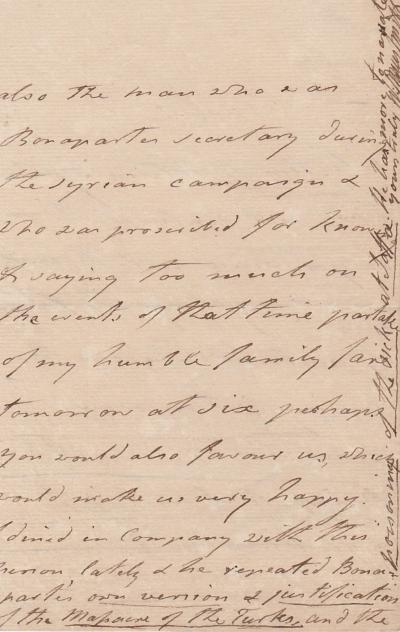 also the man who was
Bonapartes secretary during
the syrian campaign &
who was proscribed for know
& saying too much on
the events of that time partake
of my humble family fare
tomorrow at six perhaps
you would also favour us, which
would make us very happy.
I dined in Company with this
person lately & he repeated Bona-
parte's own version & justification
of the Massacre of the Turks, and the
poisoning of the sick at Jaffa. He has more
yours truly